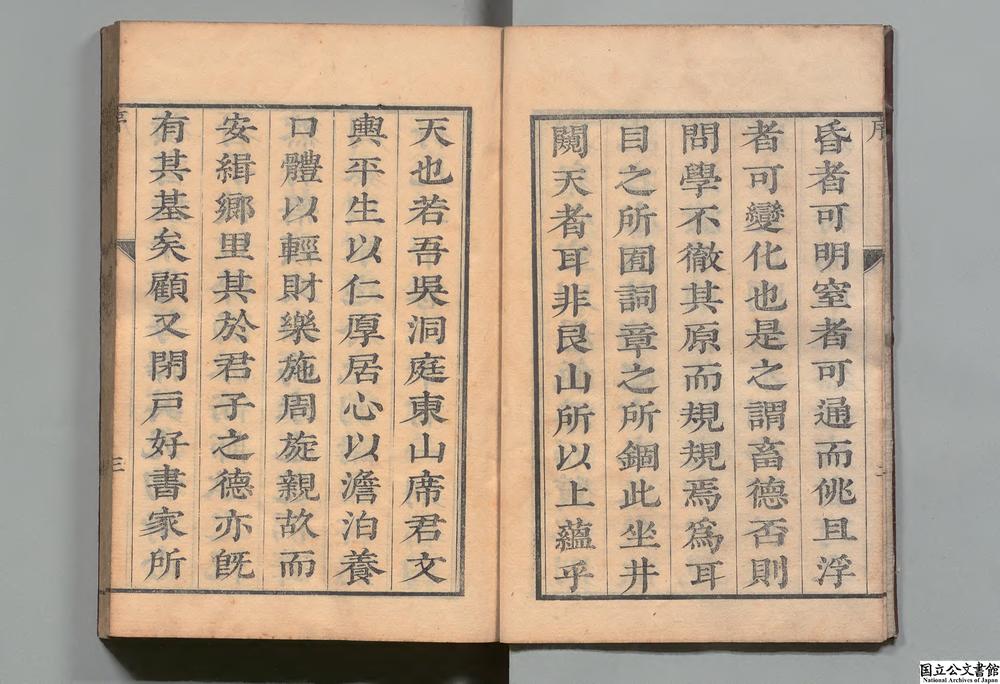 昏者可明窒者可通而佻且浮
者可變化也是之謂畜德否則
問學不徹其原而規規焉爲耳
目之所囿詞章之所錮此坐井
闚天者耳非艮山所以上蘊乎
天也若吾吳洞庭東山席君文
輿平生以仁厚居心以澹泊養
口體以輕財樂施周旋親故而
安緝鄉里其於君子之德亦旣
有其基矣顧又閉戸好書家所
序
三
国立公文書館
National Archives of Japan